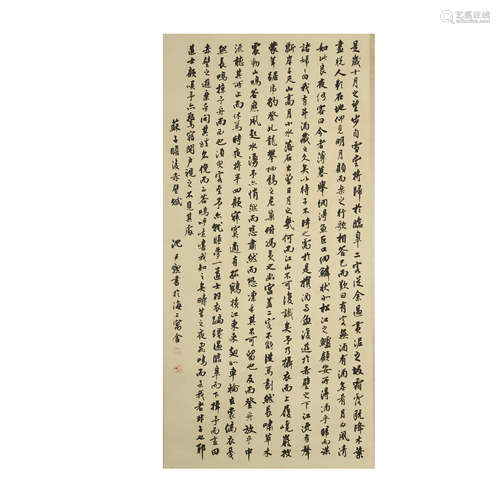 是歲十月之望步自雪堂將歸於臨皋二客從余過黃泥之坂霜露既降木葉
盡脫人影在地仰見明月顧而樂之行歌相答已而歎曰有客無酒有酒無肴月白風清
如此良夜何客曰今者薄暮舉網得魚巨口細鱗狀如松江之鱸顧安所得酒乎歸而謀
諸婦婦曰我有斗酒藏之久矣以待子不時之需於是攜酒與魚復遊於赤壁之下江流有聲
斷岸千尺山高月小水落石出曾日月之幾何而江山不可復識矣予乃攝衣而上履巉巖披
蒙茸踞虎豹登虬龍攀栖鶻之危巢俯馮夷之幽宮蓋二客不能從焉劃然長嘯草木
震動山鳴谷應風起水湧予亦悄然而悲肅然而恐凜乎其不可留也反而登舟放乎中
流聽其所止而休焉時夜將半四顧寂寥適有孤鶴橫江東來翅如車輪玄裳縞衣戛
然長鳴掠予舟而西也須臾客去予亦就睡夢一道士羽衣蹁躚過臨皋之下揖予而言曰
赤壁之遊樂乎問其姓名俛而不答嗚呼噫嘻我知之矣疇昔之夜飛鳴而過我者非子也耶
道士顧笑予亦驚寤開戶視之不見其處
蘇子瞻後赤壁賦
沈尹默書於海上寓舍